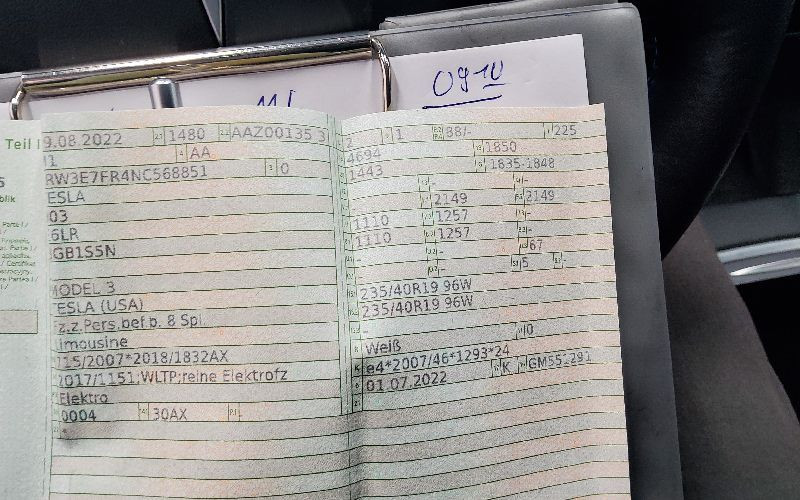 0910
Teil I
9.08.2022 1480 AAZ00135 3
AA
RW3E7FR4NC568851 0
ESLA
03
6LR
GB1S5N
MODEL 3
ESLA (USA)
z.z.Pers.bef.b. 8 Spl.
imousine
715/2007*2018/1832AX
2017/1151;WLTP;reine Elektrofz
Elektro
0004 30AX
2 1 88/- 225
4694 1850
1443 1835-1848
2149 2149
1110 1257
1110 1257
67
5
235/40R19 96W
235/40R19 96W
Weiß
e4*2007/46*1293*24
01.07.2022 K GM551291